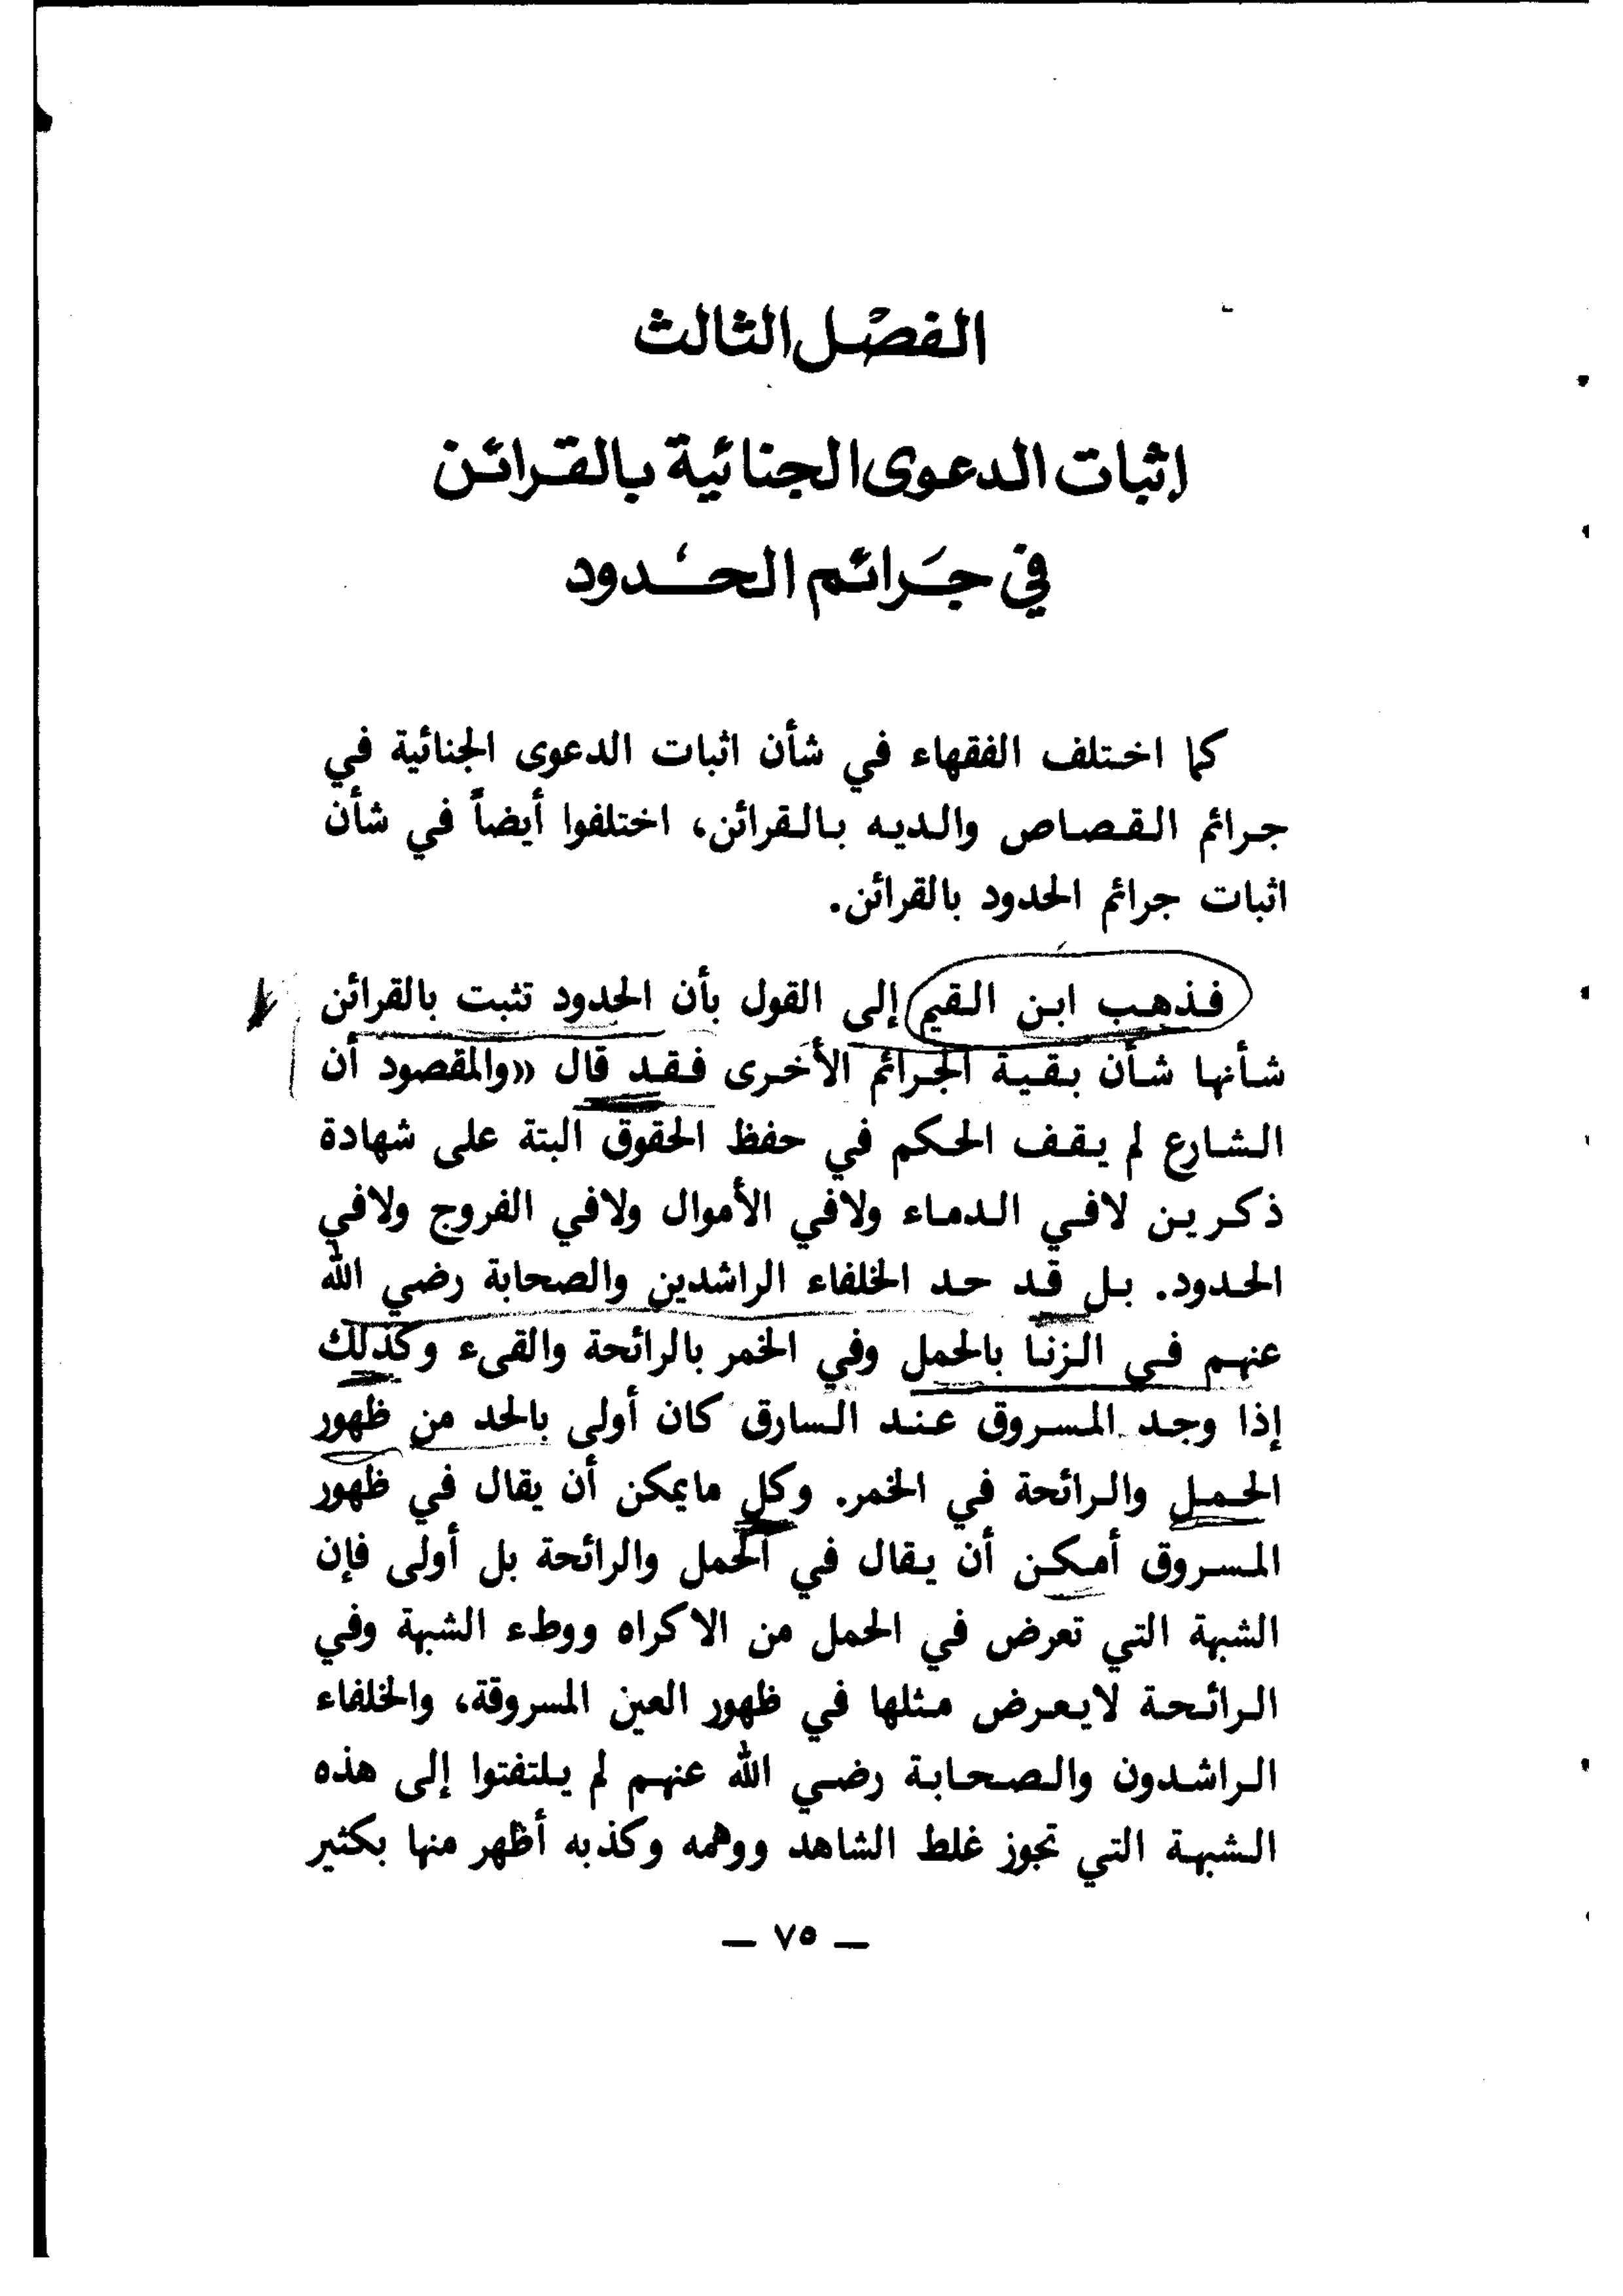 الفصل الثالث
إثبات الدعوى الجنائية بالقرائن
في جَرائم الحُدود
كما اختلف الفقهاء في شأن اثبات الدعوى الجنائية في
جرائم القصاص والديه بالقرائن، اختلفوا أيضاً في شأن
اثبات جرائم الحدود بالقرائن.
فذهب ابن القيم إلى القول بأن الحدود تثبت بالقرائن
شأنها شأن بقية الجرائم الأخرى فقد قال «والمقصود أن
الشارع لم يقف الحكم في حفظ الحقوق البتة على شهادة
ذكرين لافي الدماء ولافي الأموال ولافي الفروج ولافي
الحدود. بل قد حد الخلفاء الراشدين والصحابة رضي الله
عنهم في الزنا بالحمل وفي الخمر بالرائحة والقىء وكذلك
إذا وجد المسروق عند السارق كان أولى بالحد من ظهور
الحمل والرائحة في الخمر. وكل مايمكن أن يقال في ظهور
المسروق أمكن أن يقال في الحمل والرائحة بل أولى فإن
الشبهة التي تعرض في الحمل من الاكراه ووطء الشبهة وفي
الرائحة لايعرض مثلها في ظهور العين المسروقة، والخلفاء
الراشدون والصحابة رضي الله عنهم لم يلتفتوا إلى هذه
الشبهة التي تجوز غلط الشاهد ووهمه وكذبه أظهر منها بكثير
— ٧٥ —